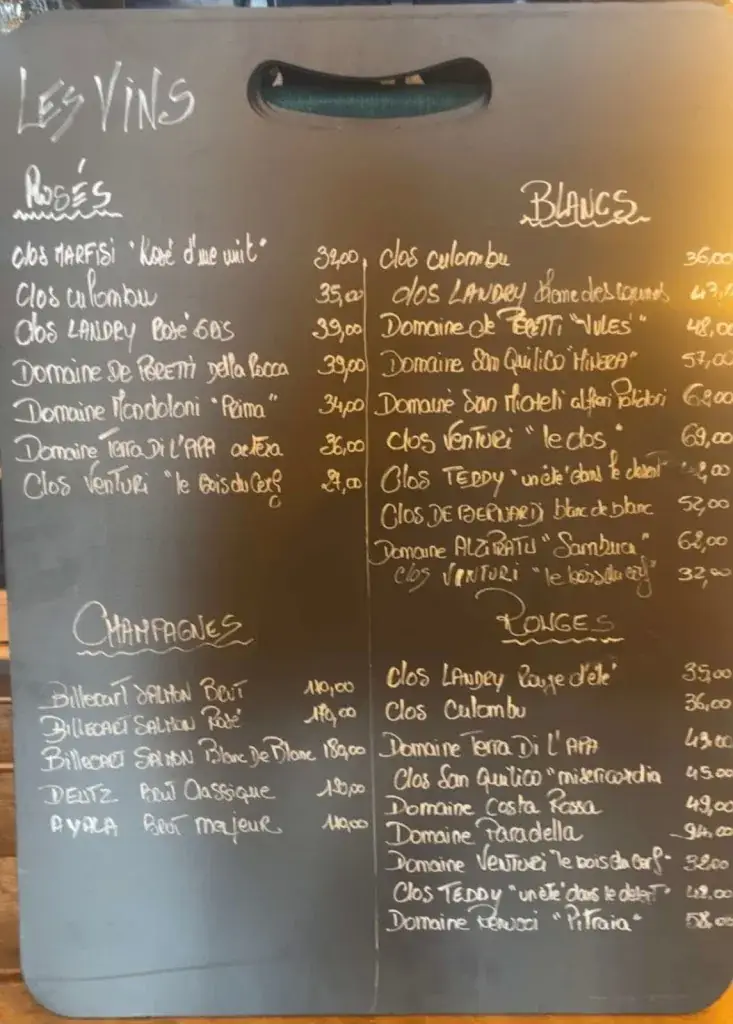 LES VINS
ROSÉS
Clos MARFISI "Rosé d'une nuit" 39,00
Clos Culombu 35,00
Clos LANDRY Rosé GRIS 39,00
Domaine DE PERETTI Della Rocca 39,00
Domaine Mondoloni "Prima" 34,00
Domaine Terra Di L'APA 36,00
Clos Venturi "le Bois du Cerf 27,00
CHAMPAGNES
Billecart SALMON BRUT 110,00
BILLECART SALMON Rosé
BILLECART SALMON Blanc De Blanc 180,00
DEUTZ BRUT Classique
AYALA BRUT majeur 110,00
BLANCS
Clos Culombu 36,00
Clos LANDRY
Domaine de PERETTI "JULES" 48,00
Domaine San Quilico "MINERA" 57,00
Domaine San Micheli alfieri Polidori
Clos Venturi "le clos" 69,00
Clos TEDDY "un été dans le désert"
Clos DE BERNARDI blanc de blanc 52,00
Domaine ALZIPRATU "Sambucu" 62,00
Clos VENTURI "le bois du cerf" 32,00
ROUGES
Clos LANDRY Rouge d'été 35,00
Clos Culombu 36,00
Domaine Terra Di L'APA 43.00
Clos San Quilico "misericordia 45.00
Domaine Costa Rossa 49,00
Domaine Paradella
Domaine VENTURI "le bois du cerf" 32.00
Clos TEDDY "un été dans le désert"
Domaine RENUCCI "Pitraia" 58,00